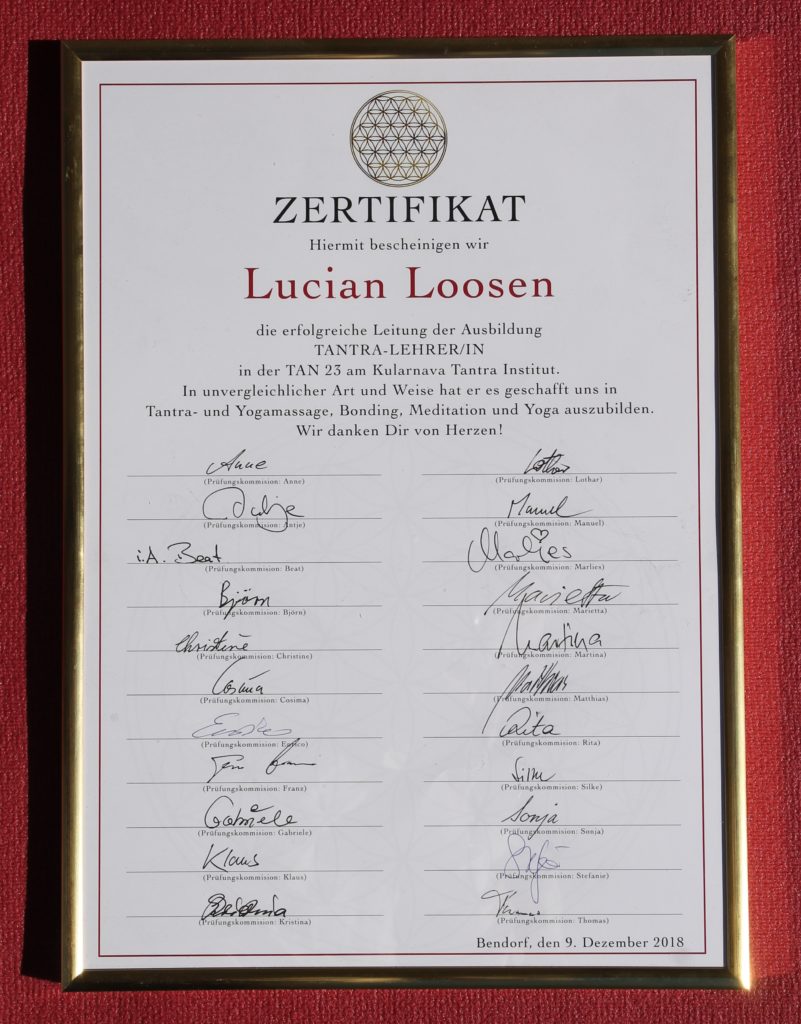 ZERTIFIKAT
Hiermit bescheinigen wir
Lucian Loosen
die erfolgreiche Leitung der Ausbildung
TANTRA-LEHRER/IN
in der TAN 23 am Kularnava Tantra Institut.
In unvergleichlicher Art und Weise hat er es geschafft uns in
Tantra- und Yogamassage, Bonding, Meditation und Yoga auszubilden.
Wir danken Dir von Herzen!
Anne
(Prüfungskommision: Anne)
Antje
(Prüfungskommision: Antje)
i.A. Beat
(Prüfungskommision: Beat)
Björn
(Prüfungskommision: Björn)
Christine
(Prüfungskommision: Christine)
Cosima
(Prüfungskommision: Cosima)
(Prüfungskommision: Enrico)
(Prüfungskommision: Franz)
Gabriele
(Prüfungskommision: Gabriele)
Klaus
(Prüfungskommision: Klaus)
(Prüfungskommision: Kristina)
Lothar
(Prüfungskommision: Lothar)
Manuel
(Prüfungskommision: Manuel)
Marlies
(Prüfungskommision: Marlies)
Marietta
(Prüfungskommision: Marietta)
Martina
(Prüfungskommision: Martina)
Matthias
(Prüfungskommision: Matthias)
Rita
(Prüfungskommision: Rita)
Silke
(Prüfungskommision: Silke)
Sonja
(Prüfungskommision: Sonja)
(Prüfungskommision: Stefanie)
(Prüfungskommision: Thomas)
Bendorf, den 9. Dezember 2018